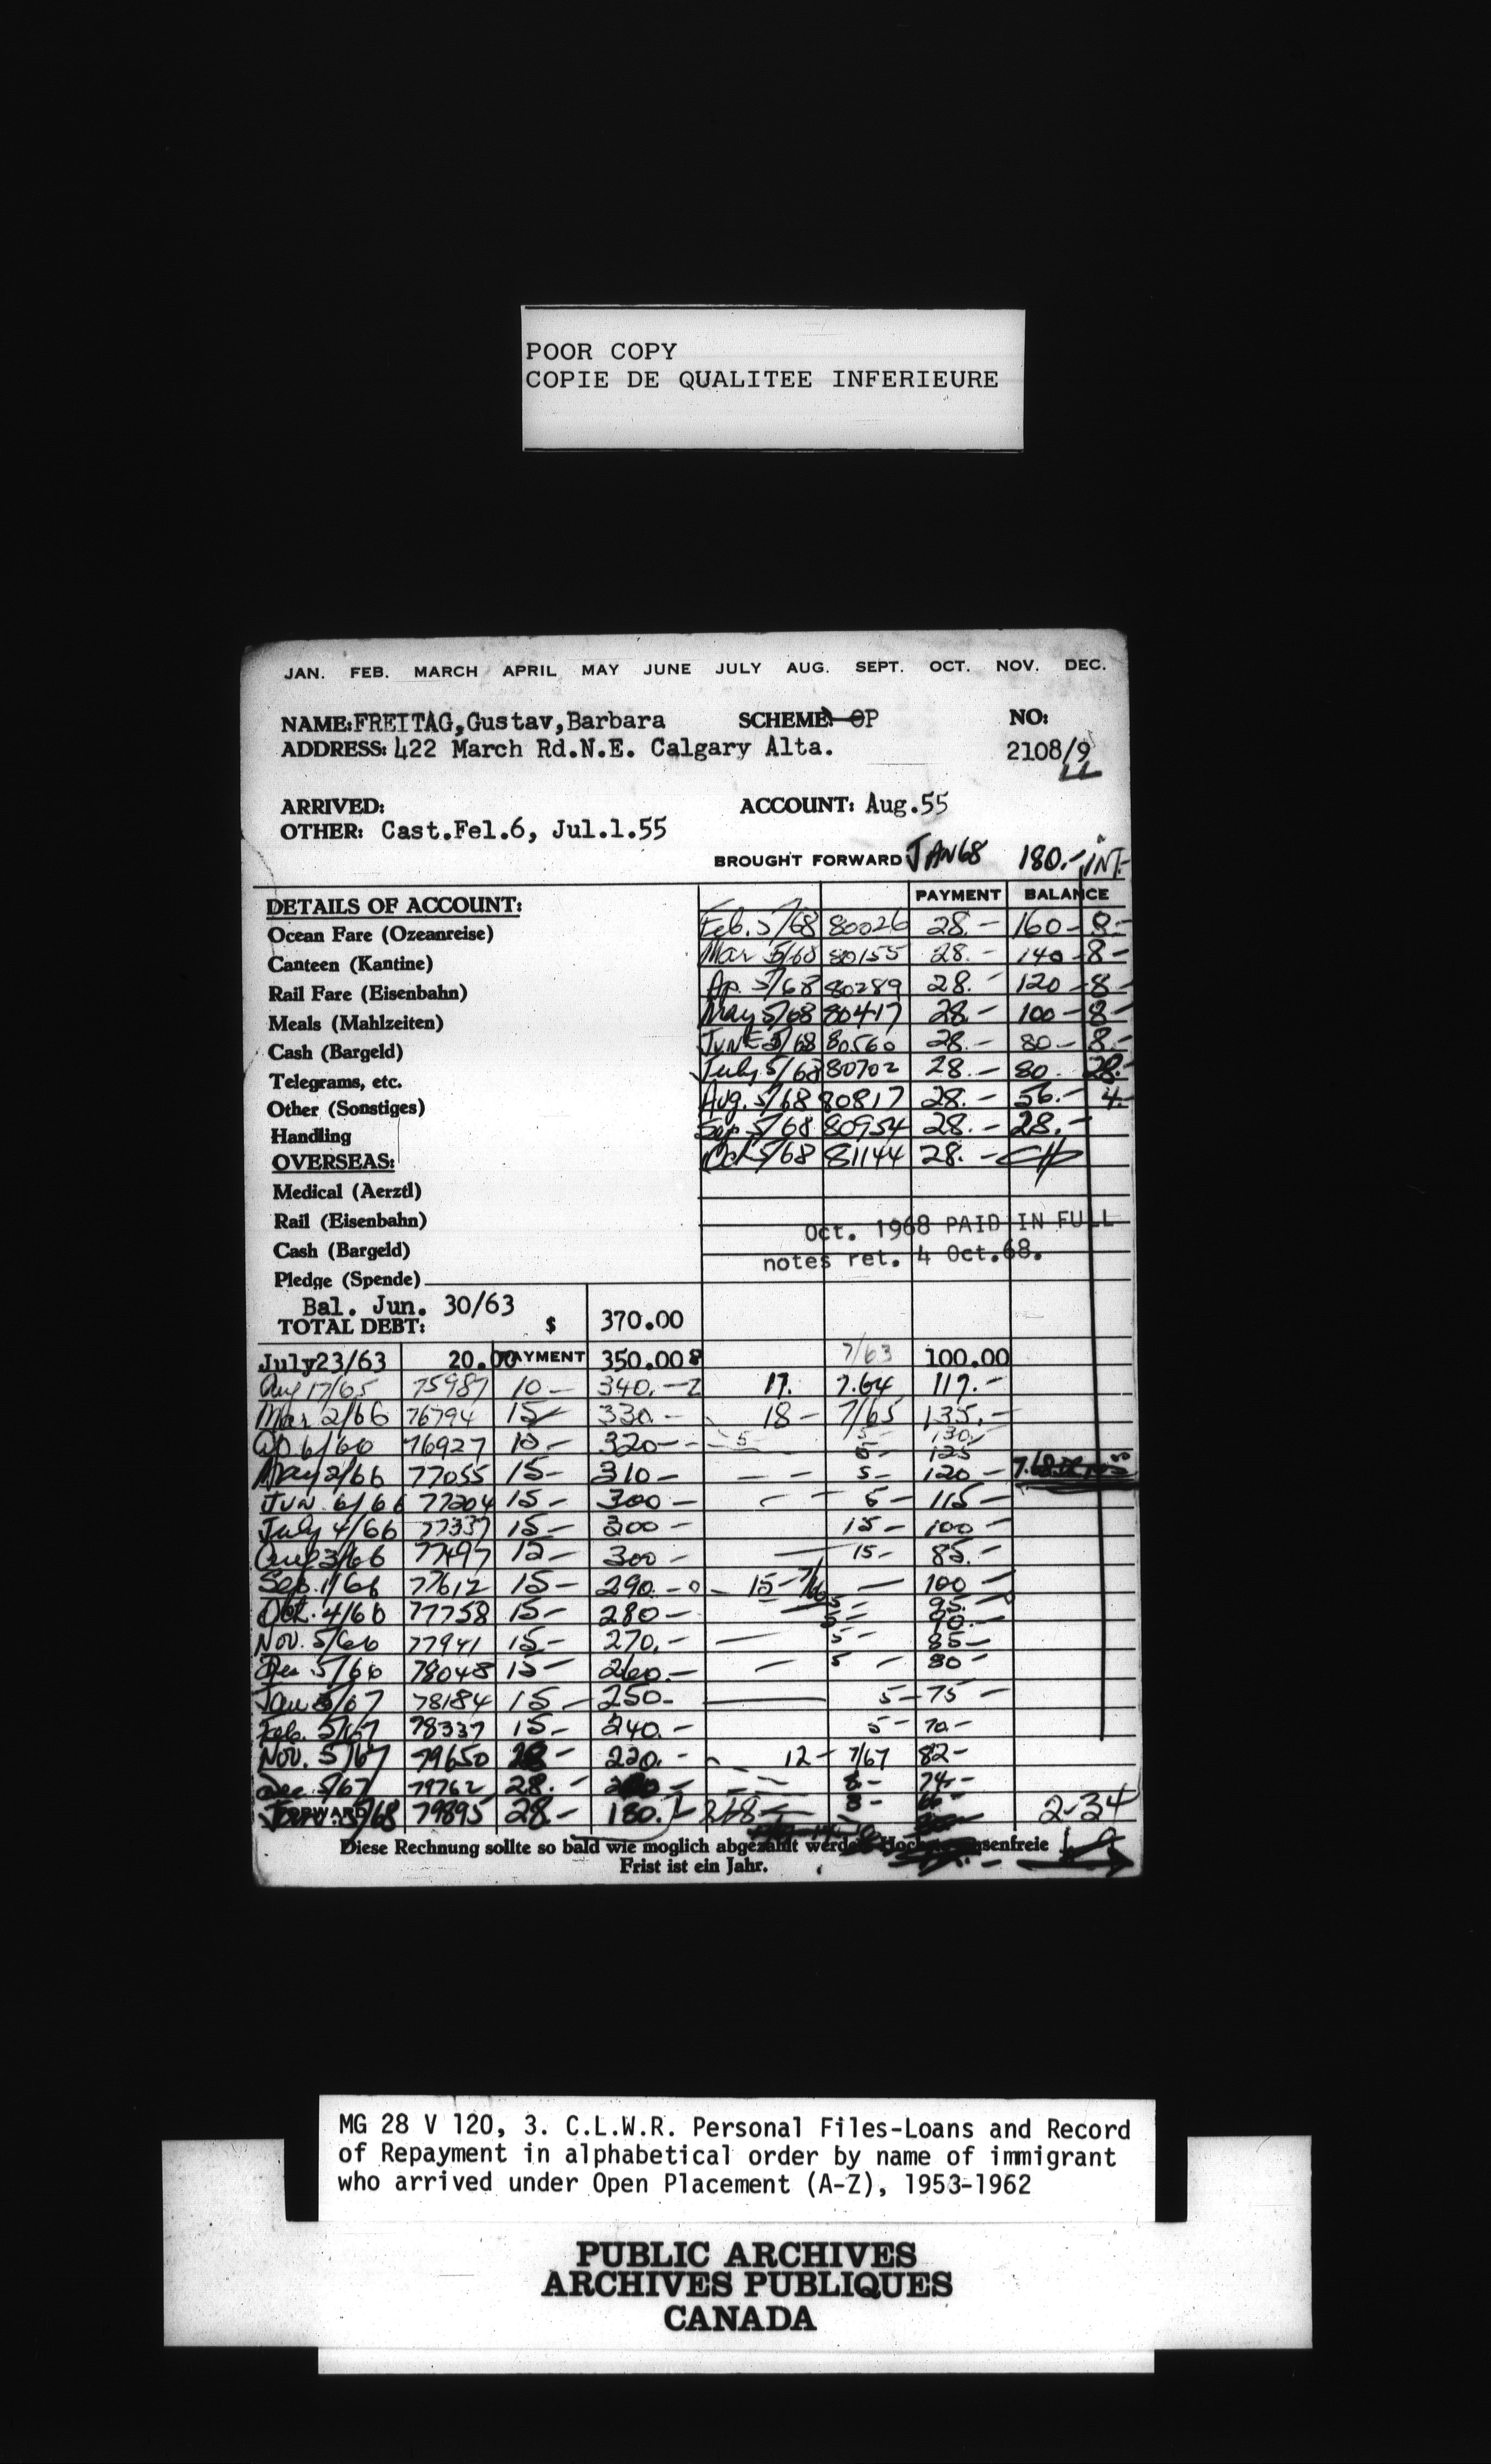 POOR COPY
COPIE DE QUALITEE INFERIEURE
JAN. FEB. MARCH APRIL MAY JUNE JULY AUG. SEPT. OCT. NOV. DEC.
NAME: FREITAG, Gustav, Barbara SCHEME: OP NO:
ADDRESS: 422 March Rd.N.E. Calgary Alta. 2108/9
ARRIVED: ACCOUNT: Aug.55
OTHER: Cast.Fel.6, Jul.1.55
BROUGHT FORWARD JAN 68 180.- INT-
PAYMENT BALANCE
DETAILS OF ACCOUNT:
Ocean Fare (Ozeanreise) Feb. 5/68 80026 28.- 160- 8-
Canteen (Kantine) Mar 5/68 80155 28.- 140- 8-
Rail Fare (Eisenbahn) Ap. 5/68 80289 28.- 120- 8-
Meals (Mahlzeiten) May 5/68 80417 28.- 100- 8-
Cash (Bargeld) JUNE 5/68 80560 28.- 80- 8.-
Telegrams, etc. July 5/68 80702 28.- 80. 28.-
Other (Sonstiges) Aug. 5/68 80817 28.- 56.- 4.-
Handling Sep. 5/68 80954 28.- 28.-
OVERSEAS: Oct 5/68 81144 28.-
Medical (Aerztl)
Rail (Eisenbahn) Oct. 1968 PAID IN FULL
Cash (Bargeld) notes ret. 4 Oct.68.
Pledge (Spende)
Bal. Jun. 30/63
TOTAL DEBT: $ 370.00
July23/63 20.00 PAYMENT 350.00 7/63 100.00
Aug 17/65 75987 10- 340.- 17. 7.64 117.-
Mar 2/66 76794 15- 330.- 18- 7/65 135.-
Ap 6/66 76927 15- 320-- 5 5- 130
5- 125
May 2/66 77055 15- 310- - - 5- 120-
Jun. 6/66 77204 15- 300- 5- 115-
July 4/66 77337 15- 300- 15- 100-
Aug 3/66 77497 15- 300- 15- 85.-
Sep. 1/66 77612 15- 290.- 15- 7/66 - 100-
Oct. 4/66 77758 15- 280- 5- 95.-
5- 90.-
Nov. 5/66 77941 15- 270.- 5- 85-
Dec 5/66 78048 15- 260.- 5- 80-
Jan 5/67 78184 15- 250- 5- 75-
Feb. 5/67 78337 15- 240.- 5- 70.-
Nov. 5/67 79650 28- 220.- 12- 7/67 82-
Dec 5/67 79762 28.- 8.- 74.-
FORWARD Jan. 5/68 79895 28.- 180. 8- 66- 2-34
Diese Rechnung sollte so bald wie moglich abgezahlt werden
Frist ist ein Jahr.
MG 28 V 120, 3. C.L.W.R. Personal Files-Loans and Record
of Repayment in alphabetical order by name of immigrant
who arrived under Open Placement (A-Z), 1953-1962
PUBLIC ARCHIVES
ARCHIVES PUBLIQUES
CANADA